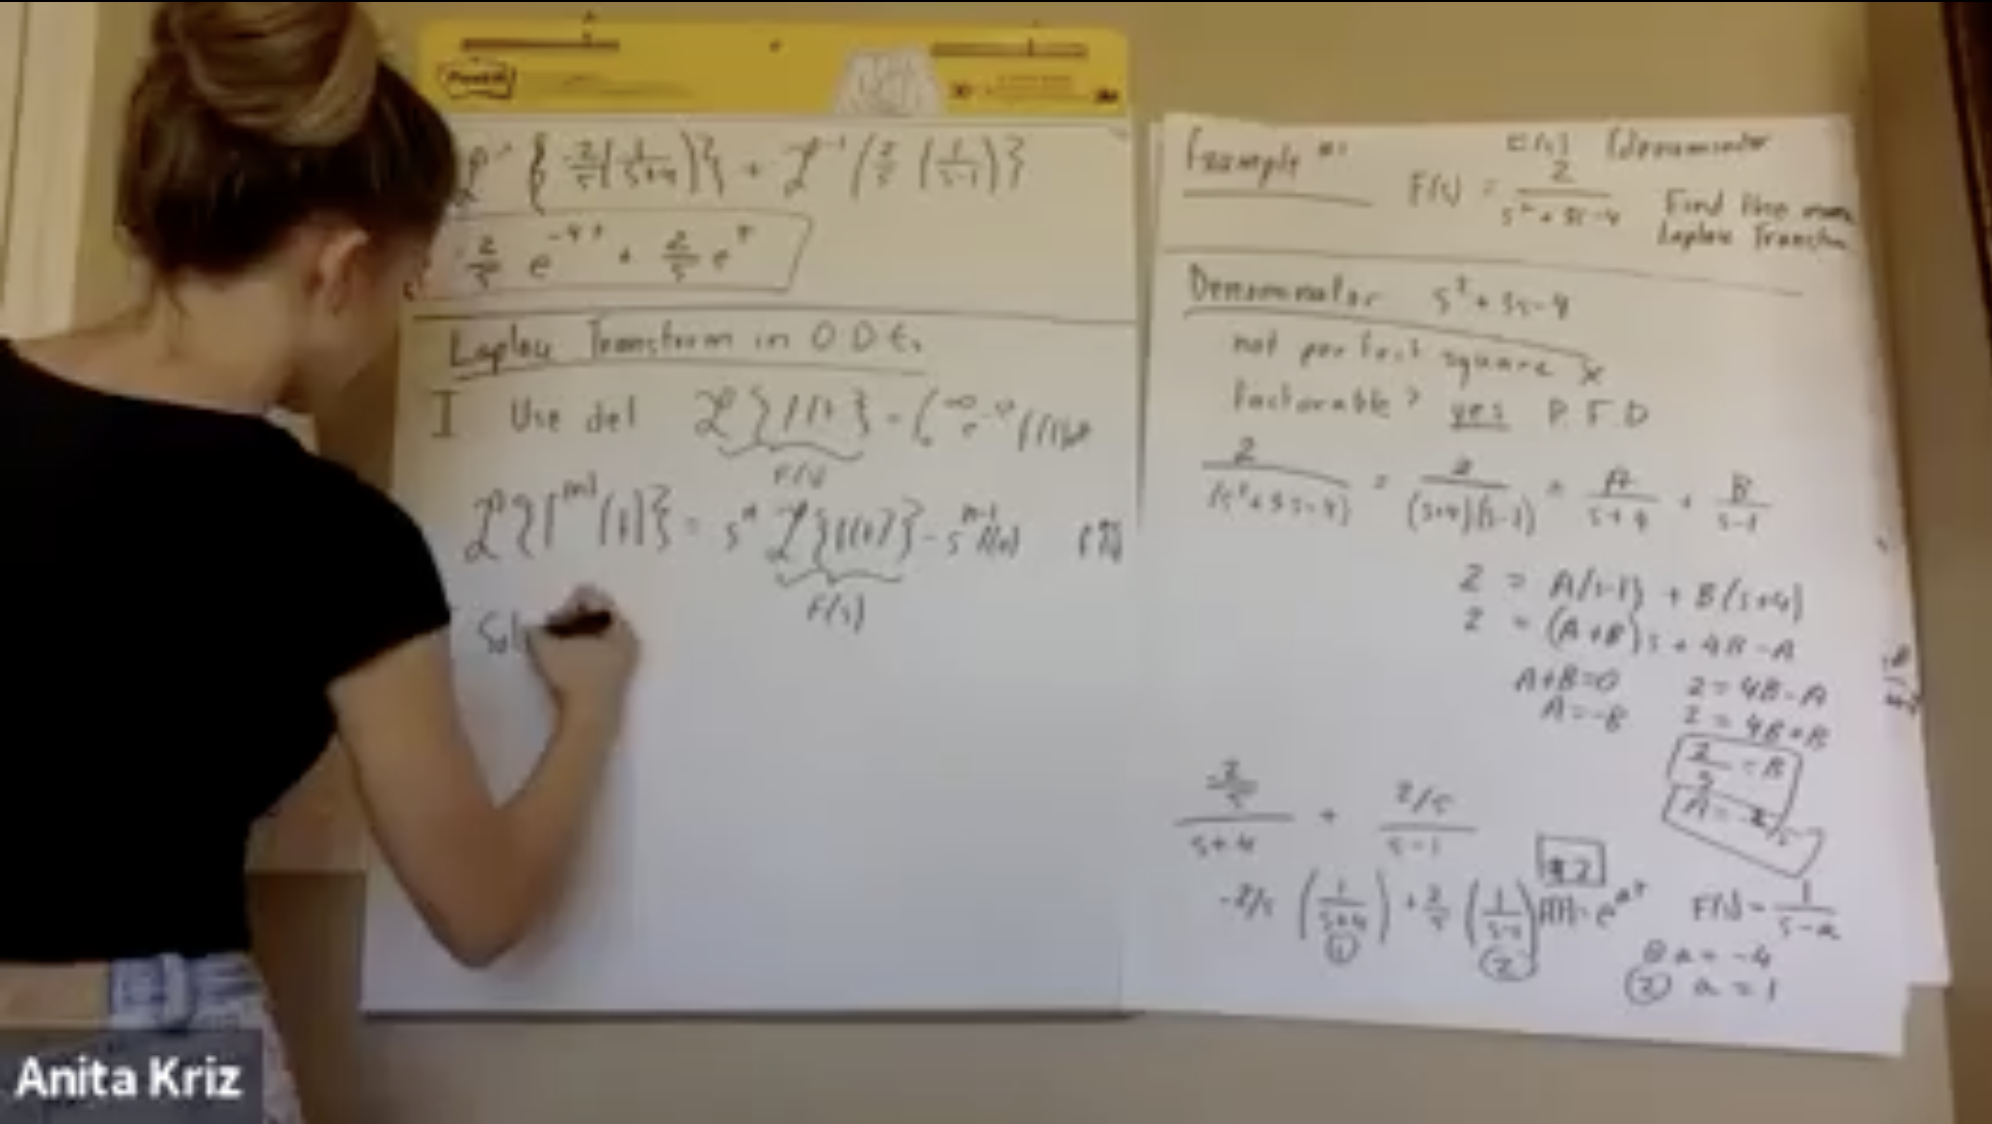 Post-it
3M
ℒ⁻¹ { -2/5 (1/(s+4)) } + ℒ⁻¹ ( 2/5 (1/(s-1)) }
-2/5 e^(-4t) + 2/5 e^t
Laplace Transform in O.D.E.
I Use def ℒ{f(t)} = ∫ f(t)dt
F(s)
ℒ{f^(n)(t)} = s^n ℒ{f(t)} - s^(n-1) f(0)
F(s)
Sol
Example #1
(denominator
F(s) = 2/(s²+3s-4) Find the inverse
Laplace Transform
Denominator s²+3s-4
not perfect square x
factorable? yes P.F.D
2/(s²+3s-4) = 2/((s+4)(s-1)) = A/(s+4) + B/(s-1)
2 = A(s-1) + B(s+4)
2 = (A+B)s + 4B-A
A+B=0 2=4B-A
A=-B 2=4B+B
2/5 = B
A = -2/5
-2/5/(s+4) + 2/5/(s-1)
#2
-2/5 (1/(s+4)) + 2/5 (1/(s-1)) f(t)=e^(at) F(s)=1/(s-a)
① ② ① a=-4
② a=1
Anita Kriz